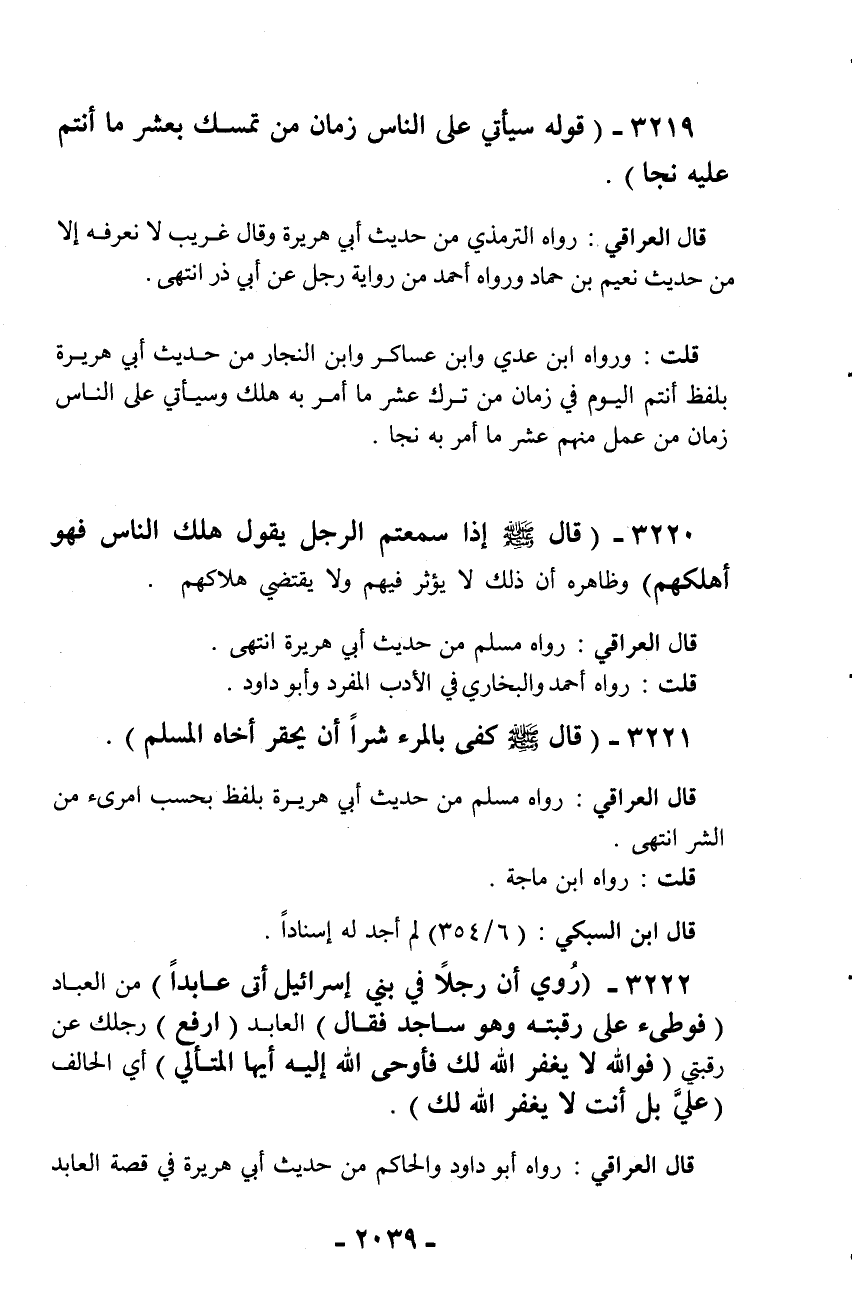 ٣٢١٩ - ( قوله سيأتي على الناس زمان من تمسك بعشر ما أنتم
عليه نجا ) .
قال العراقي : رواه الترمذي من حديث أبي هريرة وقال غريب لا نعرفه إلا
من حديث نعيم بن حماد ورواه أحمد من رواية رجل عن أبي ذر انتهى .
قلت : ورواه ابن عدي وابن عساكر وابن النجار من حديث أبي هريرة
بلفظ أنتم اليوم في زمان من ترك عشر ما أمر به هلك وسيأتي على الناس
زمان من عمل منهم عشر ما أمر به نجا .
٣٢٢٠ - ( قال ﷺ إذا سمعتم الرجل يقول هلك الناس فهو
أهلكهم) وظاهره أن ذلك لا يؤثر فيهم ولا يقتضي هلاكهم .
قال العراقي : رواه مسلم من حديث أبي هريرة انتهى .
قلت : رواه أحمد والبخاري في الأدب المفرد وأبو داود .
٣٢٢١ - ( قال ﷺ كفى بالمرء شراً أن يحقر أخاه المسلم ) .
قال العراقي : رواه مسلم من حديث أبي هريرة بلفظ بحسب امرىء من
الشر انتهى .
قلت : رواه ابن ماجة .
قال ابن السبكي : ( ٦/ ٣٥٤) لم أجد له إسناداً .
٣٢٢٢ - (رُوي أن رجلاً في بني إسرائيل أتى عابداً ) من العباد
( فوطىء على رقبته وهو ساجد فقال ) العابد ( ارفع ) رجلك عن
رقبتي ( فوالله لا يغفر الله لك فأوحى الله إليه أيها المتألي ) أي الحالف
( عليَّ بل أنت لا يغفر الله لك ) .
قال العراقي : رواه أبو داود والحاكم من حديث أبي هريرة في قصة العابد
- ٢٠٣٩ -